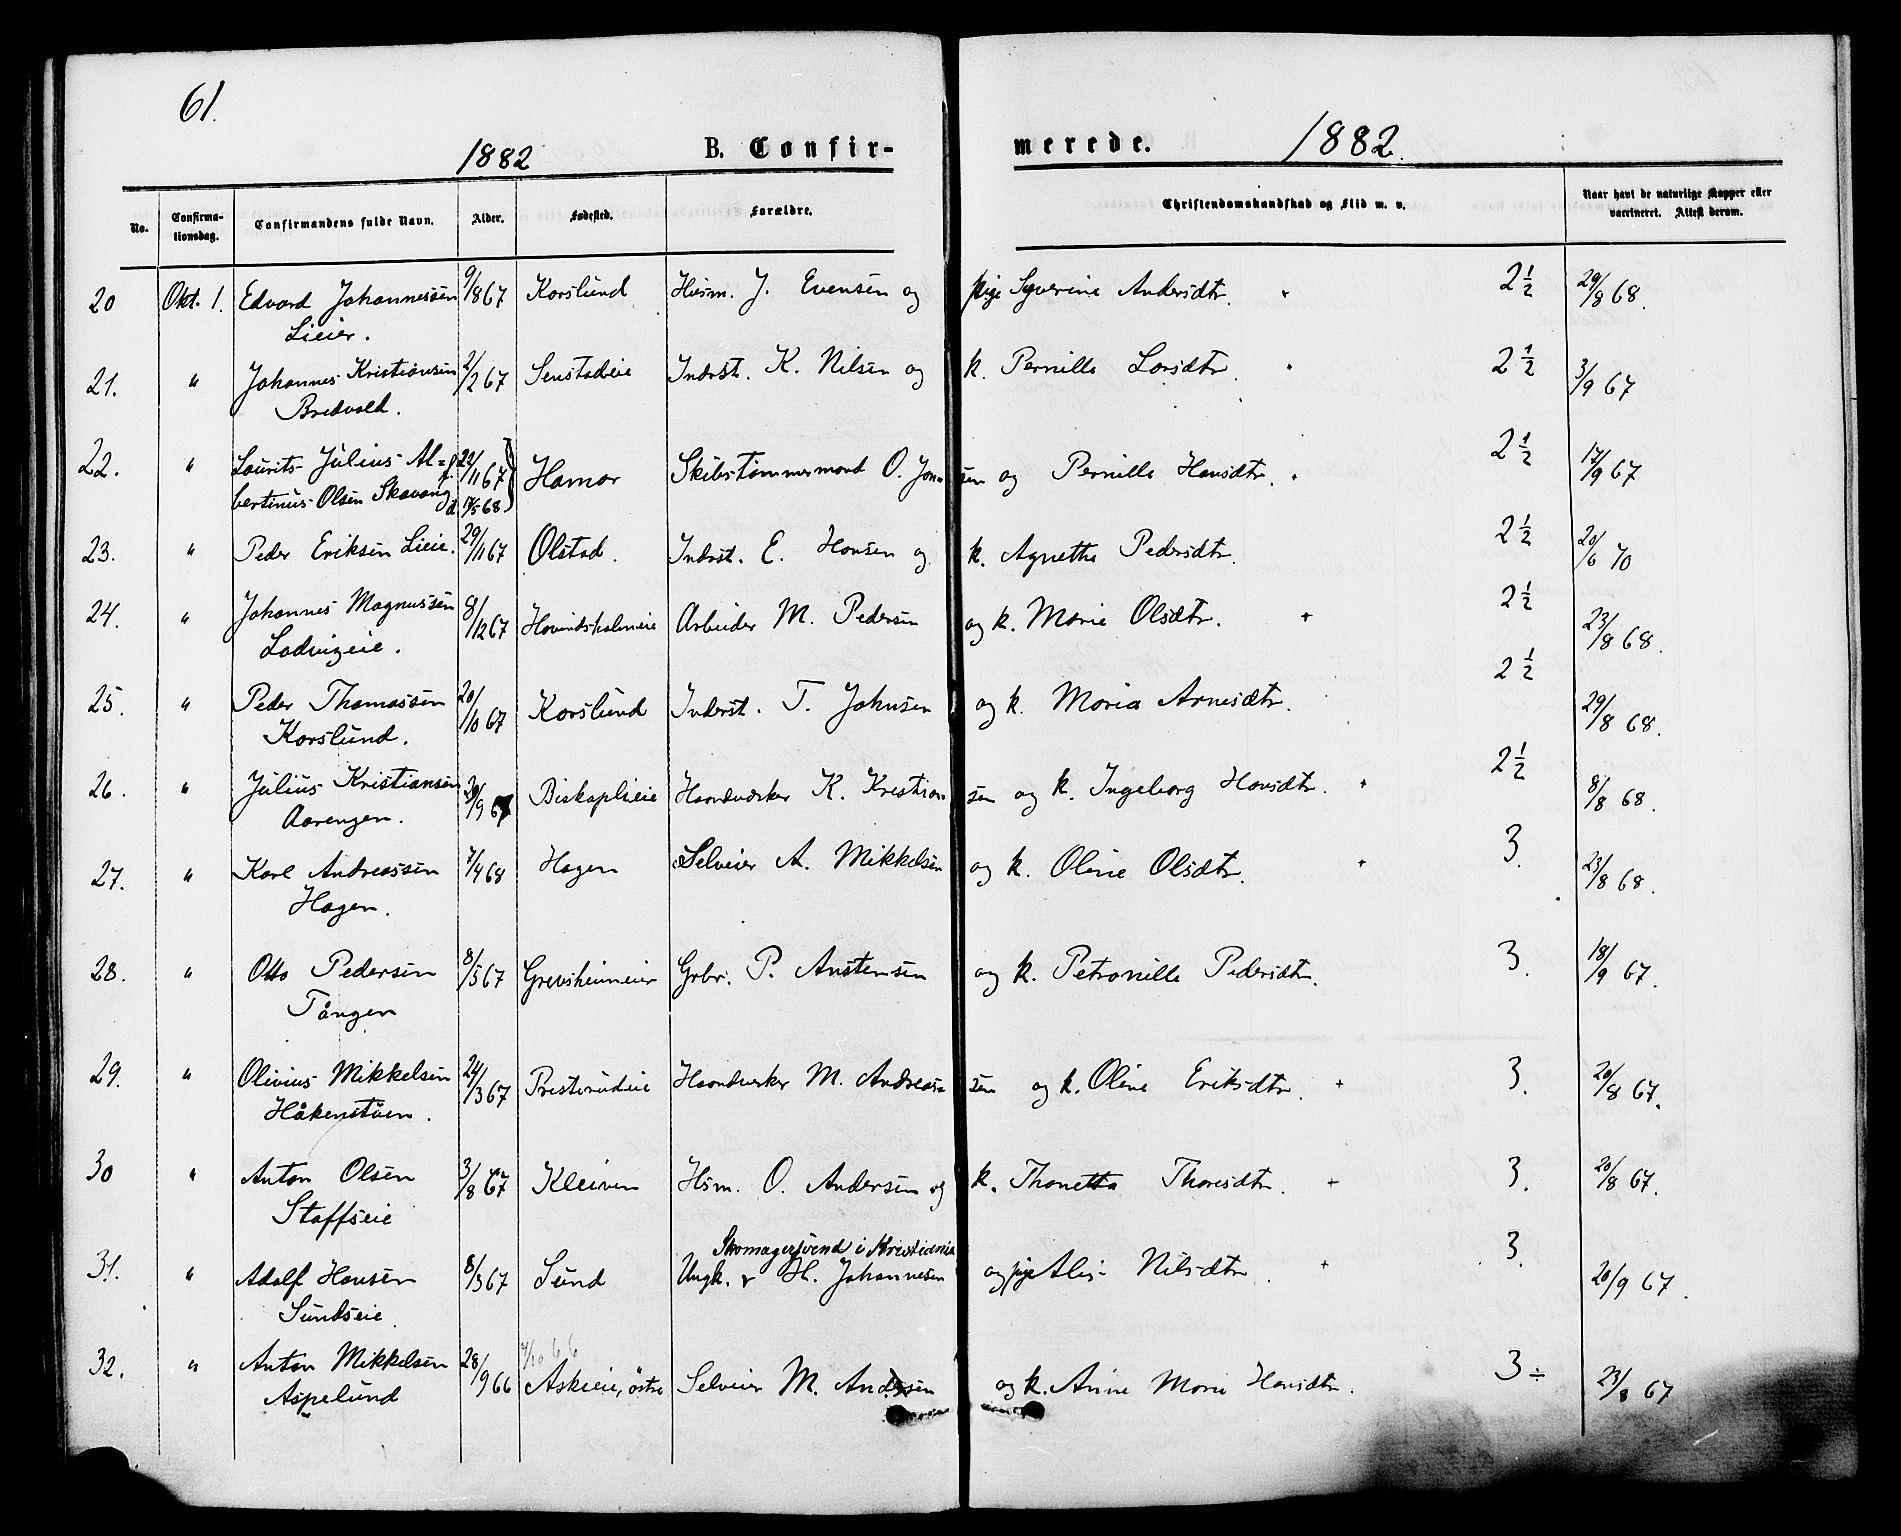 61.
1882 B. Confir- merede. 1882.
No. Confirma-tionsdag. Confirmandens fulde Navn. Alder. Fødested. Forældre. Christendomskundskab og Flid m. v. Naar havt de naturlige Kopper eller vaccineret. Attest derom.
20 Okt. 1. Edvard Johannessen 9/8 67 Korslund Husm. J. Evensen og pige Syverine Andersdtr. " 2 1/2 29/8 68.
Lieier.
21. " Johannes Kristiansen 2/2 67 Senstadeie Inderst. K. Nilsen og k. Pernille Larsdtr. " 2 1/2 3/9 67
Bredvold.
22. " Laurits Julius Al= 22/11 67 Hamar Skibstømmermand O. Jon= sen og Pernille Hansdtr. " 2 1/2 17/9 67
bertinus Olsen Skavang d. 17/5 68
23. " Peder Eriksen Lieie. 29/11 67 Olstad. Inderst. E. Hansen og k. Agnethe Pedersdtr. 2 1/2 20/6 70
24. " Johannes Magnussen 8/12 67 Hovindsholmeie Arbeider M. Pedersen og k. Marie Olsdtr. " 2 1/2 23/8 68.
Ladvigeie.
25. " Peder Thomassen 20/10 67 Korslund Inderst. T. Johnsen og k. Maria Arnesdtr. 2 1/2 29/8 68.
Korslund.
26. " Julius Kristiansen 29/9 67 Biskoplieie Haandverker K. Kristian= sen og k. Ingeborg Hansdtr. " 2 1/2 8/8 68.
Aarengen.
27. " Karl Andreassen 7/4 68 Hagen Selveier A. Mikkelsen og k. Oline Olsdtr. " 3. 23/8 68.
Hagen.
28. " Otto Pedersen 8/5 67 Grevsheimeier Grbr. P. Austensen og k. Petronille Pedersdtr. 3. 18/9 67.
Tången
29. " Olivius Mikkelsen 24/3 67 Presterudeie Haandverker M. Andreas= sen og k. Oline Eriksdtr. " 3. 20/8 67.
Håkenstuen.
30 " Anton Olsen 3/8 67 Kleiven Hsm. O. Andersen og k. Thonetta Thoresdtr. " 3. 20/8 67.
Staffseie
Skomagersvend i Kristiania
31. " Adolf Hansen 8/3 67 Sund Ungk. v H. Johannesen og pige Alis Nilsdtr. " 3. 20/9 67.
Sundseie.
7/10 66
32. " Anton Mikkelsen 28/9 66 Askieie, østre Selveier M. Andersen og k. Anne Marie Hansdtr. 3 ÷ 23/8 67
Aspelund